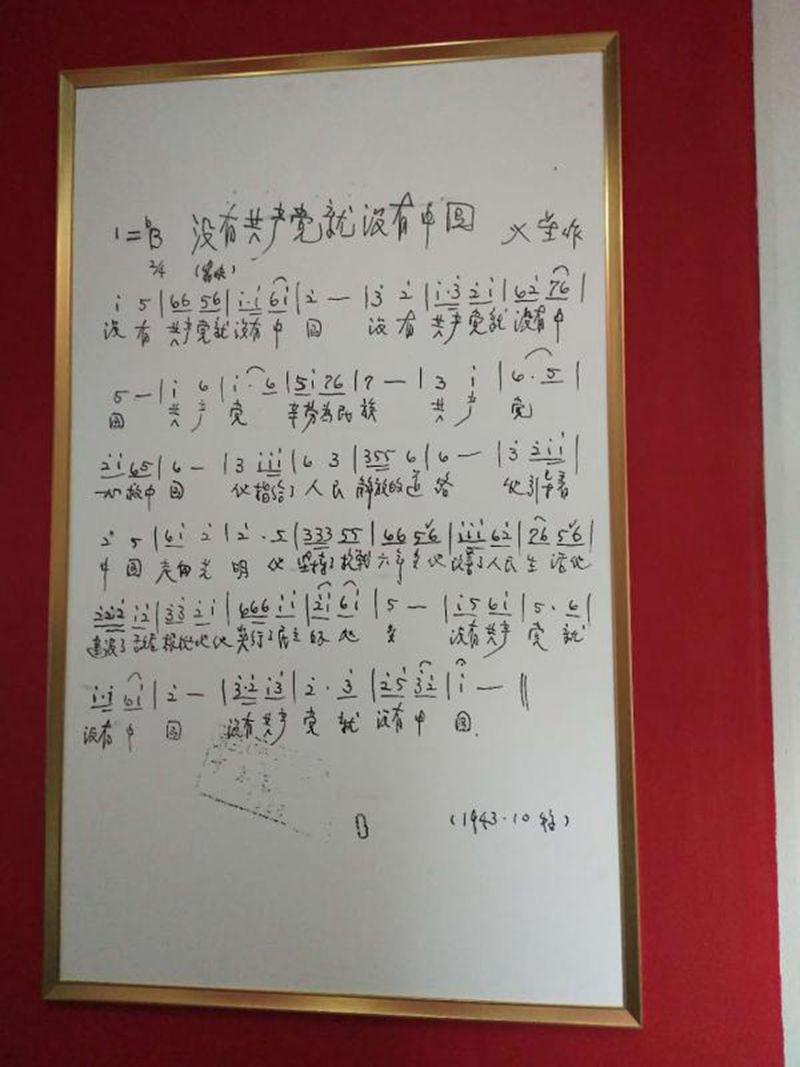 1=♭B 没有共产党就没有中国 火星作
2/4
i 5 | 66 56 | i·i 6i | 2̇ — | 3̇ 2̇ | i·3̇ 2̇i | 62̇ 76 |
没有共产党就没有中国 没有共产党就没有中
5 — | i 6 | i·6 | 5i 76 | 7 — | 3 i | 6·5 |
国 共产党 辛劳为民族 共产党
2̇i 65 | 6 — | 3 iii | 6 3 | 355 6 | 6 — | 3̇ 2̇ii |
救中国 他指给了人民解放的道路 他引
2̇ 5 | 6i 2̇ | 2̇·5 | 333 55 | 66 56 | iii 62̇ | 76 56 |
中国走向光明 他坚持了抗战六年多他改善了人民生活他
2̇2̇2̇ i2̇ | 3̇3̇ 2̇i | 666 ii | 2̇i 6i | 5 — | i5 6i | 5·6 |
建设了敌后根据地他实行了民主的好处多 没有共产党就
i·i 6i | 2̇ — | 3̇·2̇ i3̇ | 2̇·3̇ | 2̇5 3̇2̇ | i — ‖
没有中国 没有共产党就没有中国.
(1943·10 )